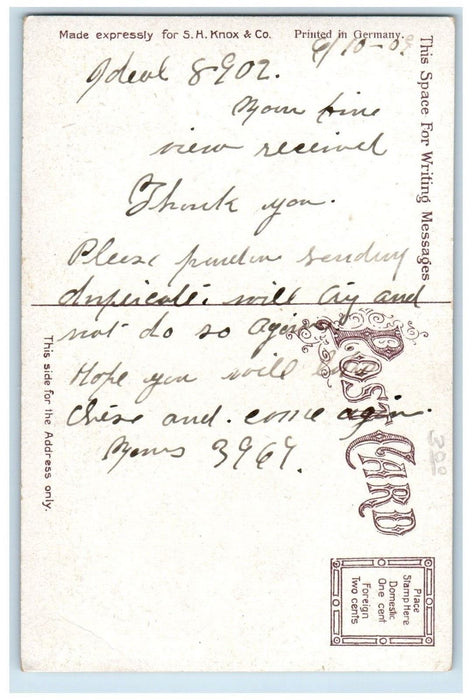 Made expressly for S. H. Knox & Co. Printed in Germany.
6/10-09
Ideal 8902.
Your fine
view received
Thank you.
Please pardon sending
duplicate. will try and
not do so again
Hope you will
and. come again.
Yours 3969.
This Space For Writing Messages
POST CARD
This side for the Address only.
300
Place
Stamp Here
Domestic
One cent
Foreign
Two cents